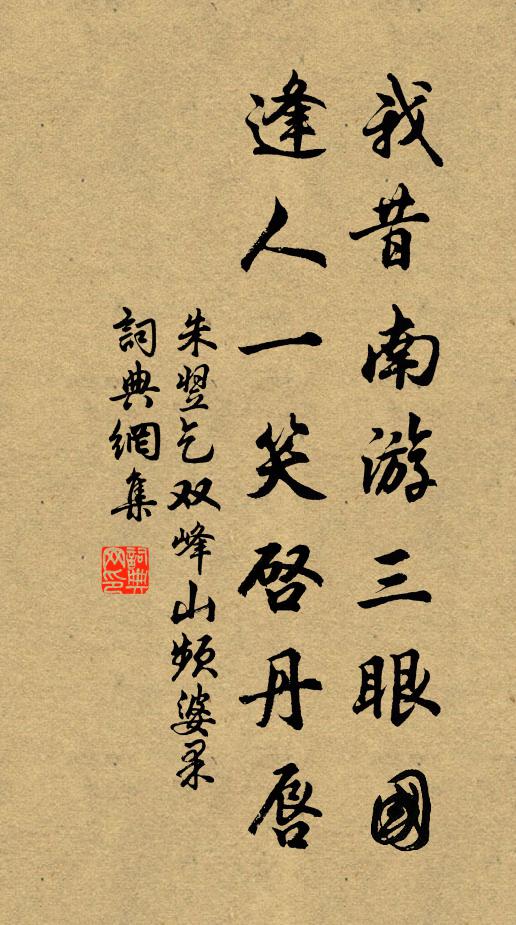 我昔南游三眼國
逢人一笑啓丹唇
朱翌乞双峰山頻婆果
詞典網集
詞典网印